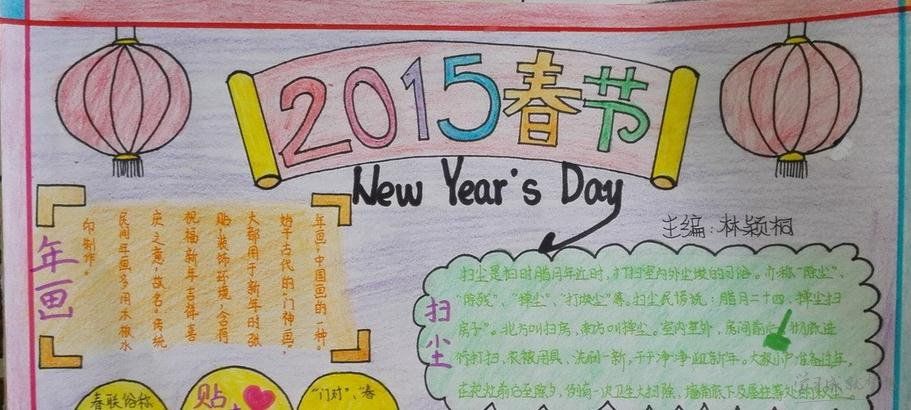 2015春节
New Year's Day
主编:林颖桐
年画
年画,中国画的一种。
始于古代的"门神画",
大都用于新年时张
贴,装饰环境,含有
祝福新年吉祥喜
庆之意,故名。传统
民间年画多用木板水
印制作。
扫尘
扫尘是扫时腊月年近时,打扫室内外尘垢的习俗。亦称"除尘"、
"除残"、"掸尘"、"打埃尘"等。扫尘民谚说:腊月二十四,掸尘扫
房子"。北方叫扫房,南方叫掸尘。室内室外,房间
打扫,衣被用具,洗刷一新,干干净净迎新年。大家小户
春联俗称
贴
"门对"、春